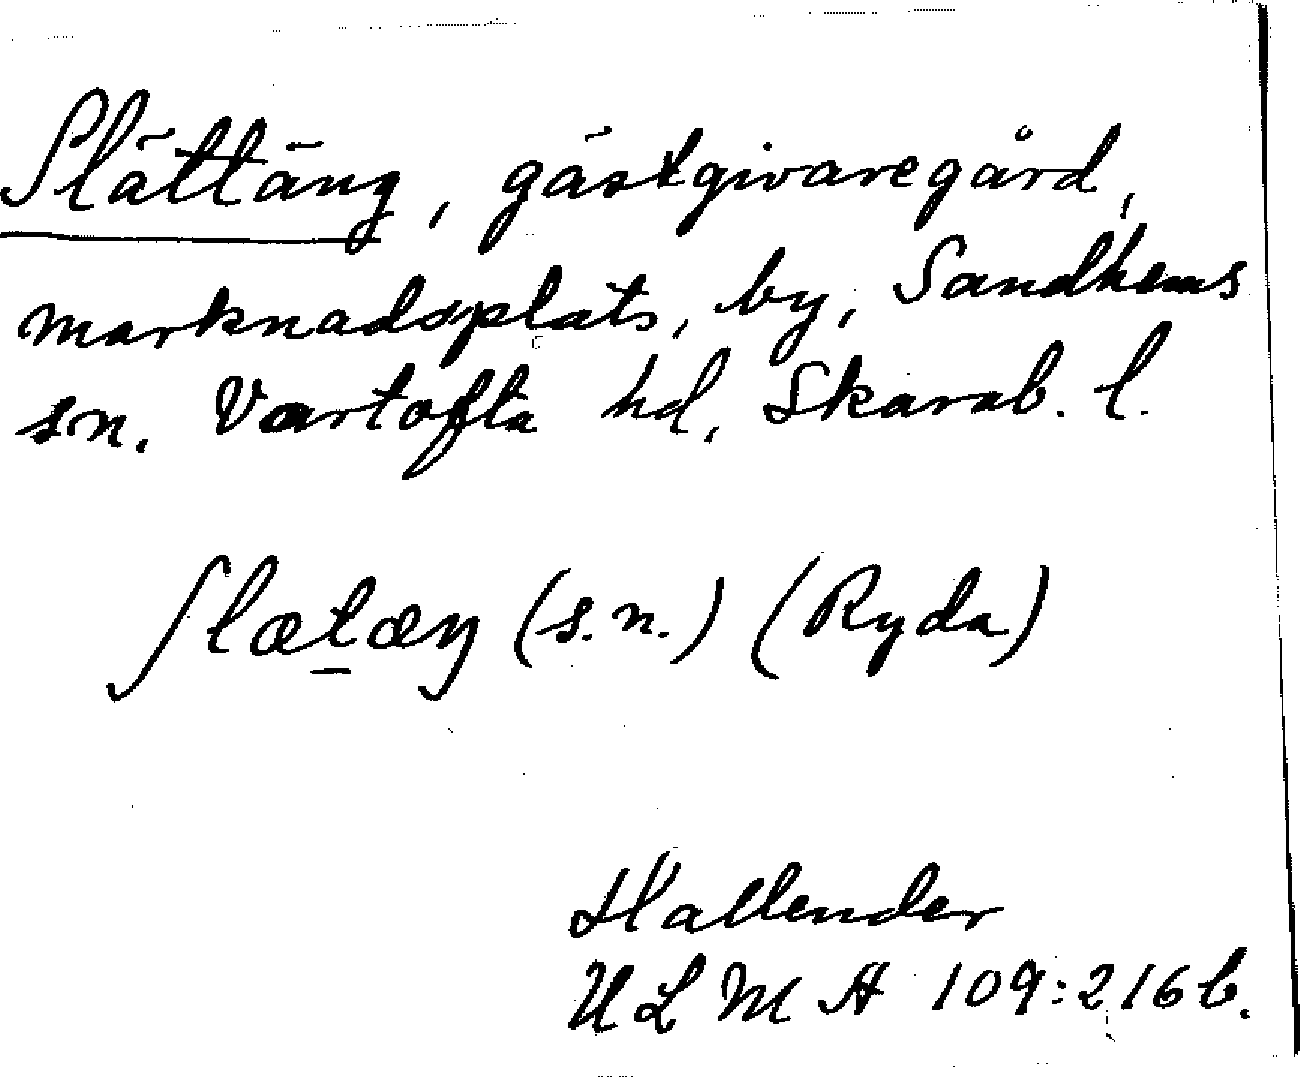 Slättäng, gästgivaregård,
marknadsplats, by, Sandhems
sn. Vartofta hd, Skarab. l.
ʃlæt̠æŋ (s.n.) (Ryda)
Hallender
ULMA 109:216b.